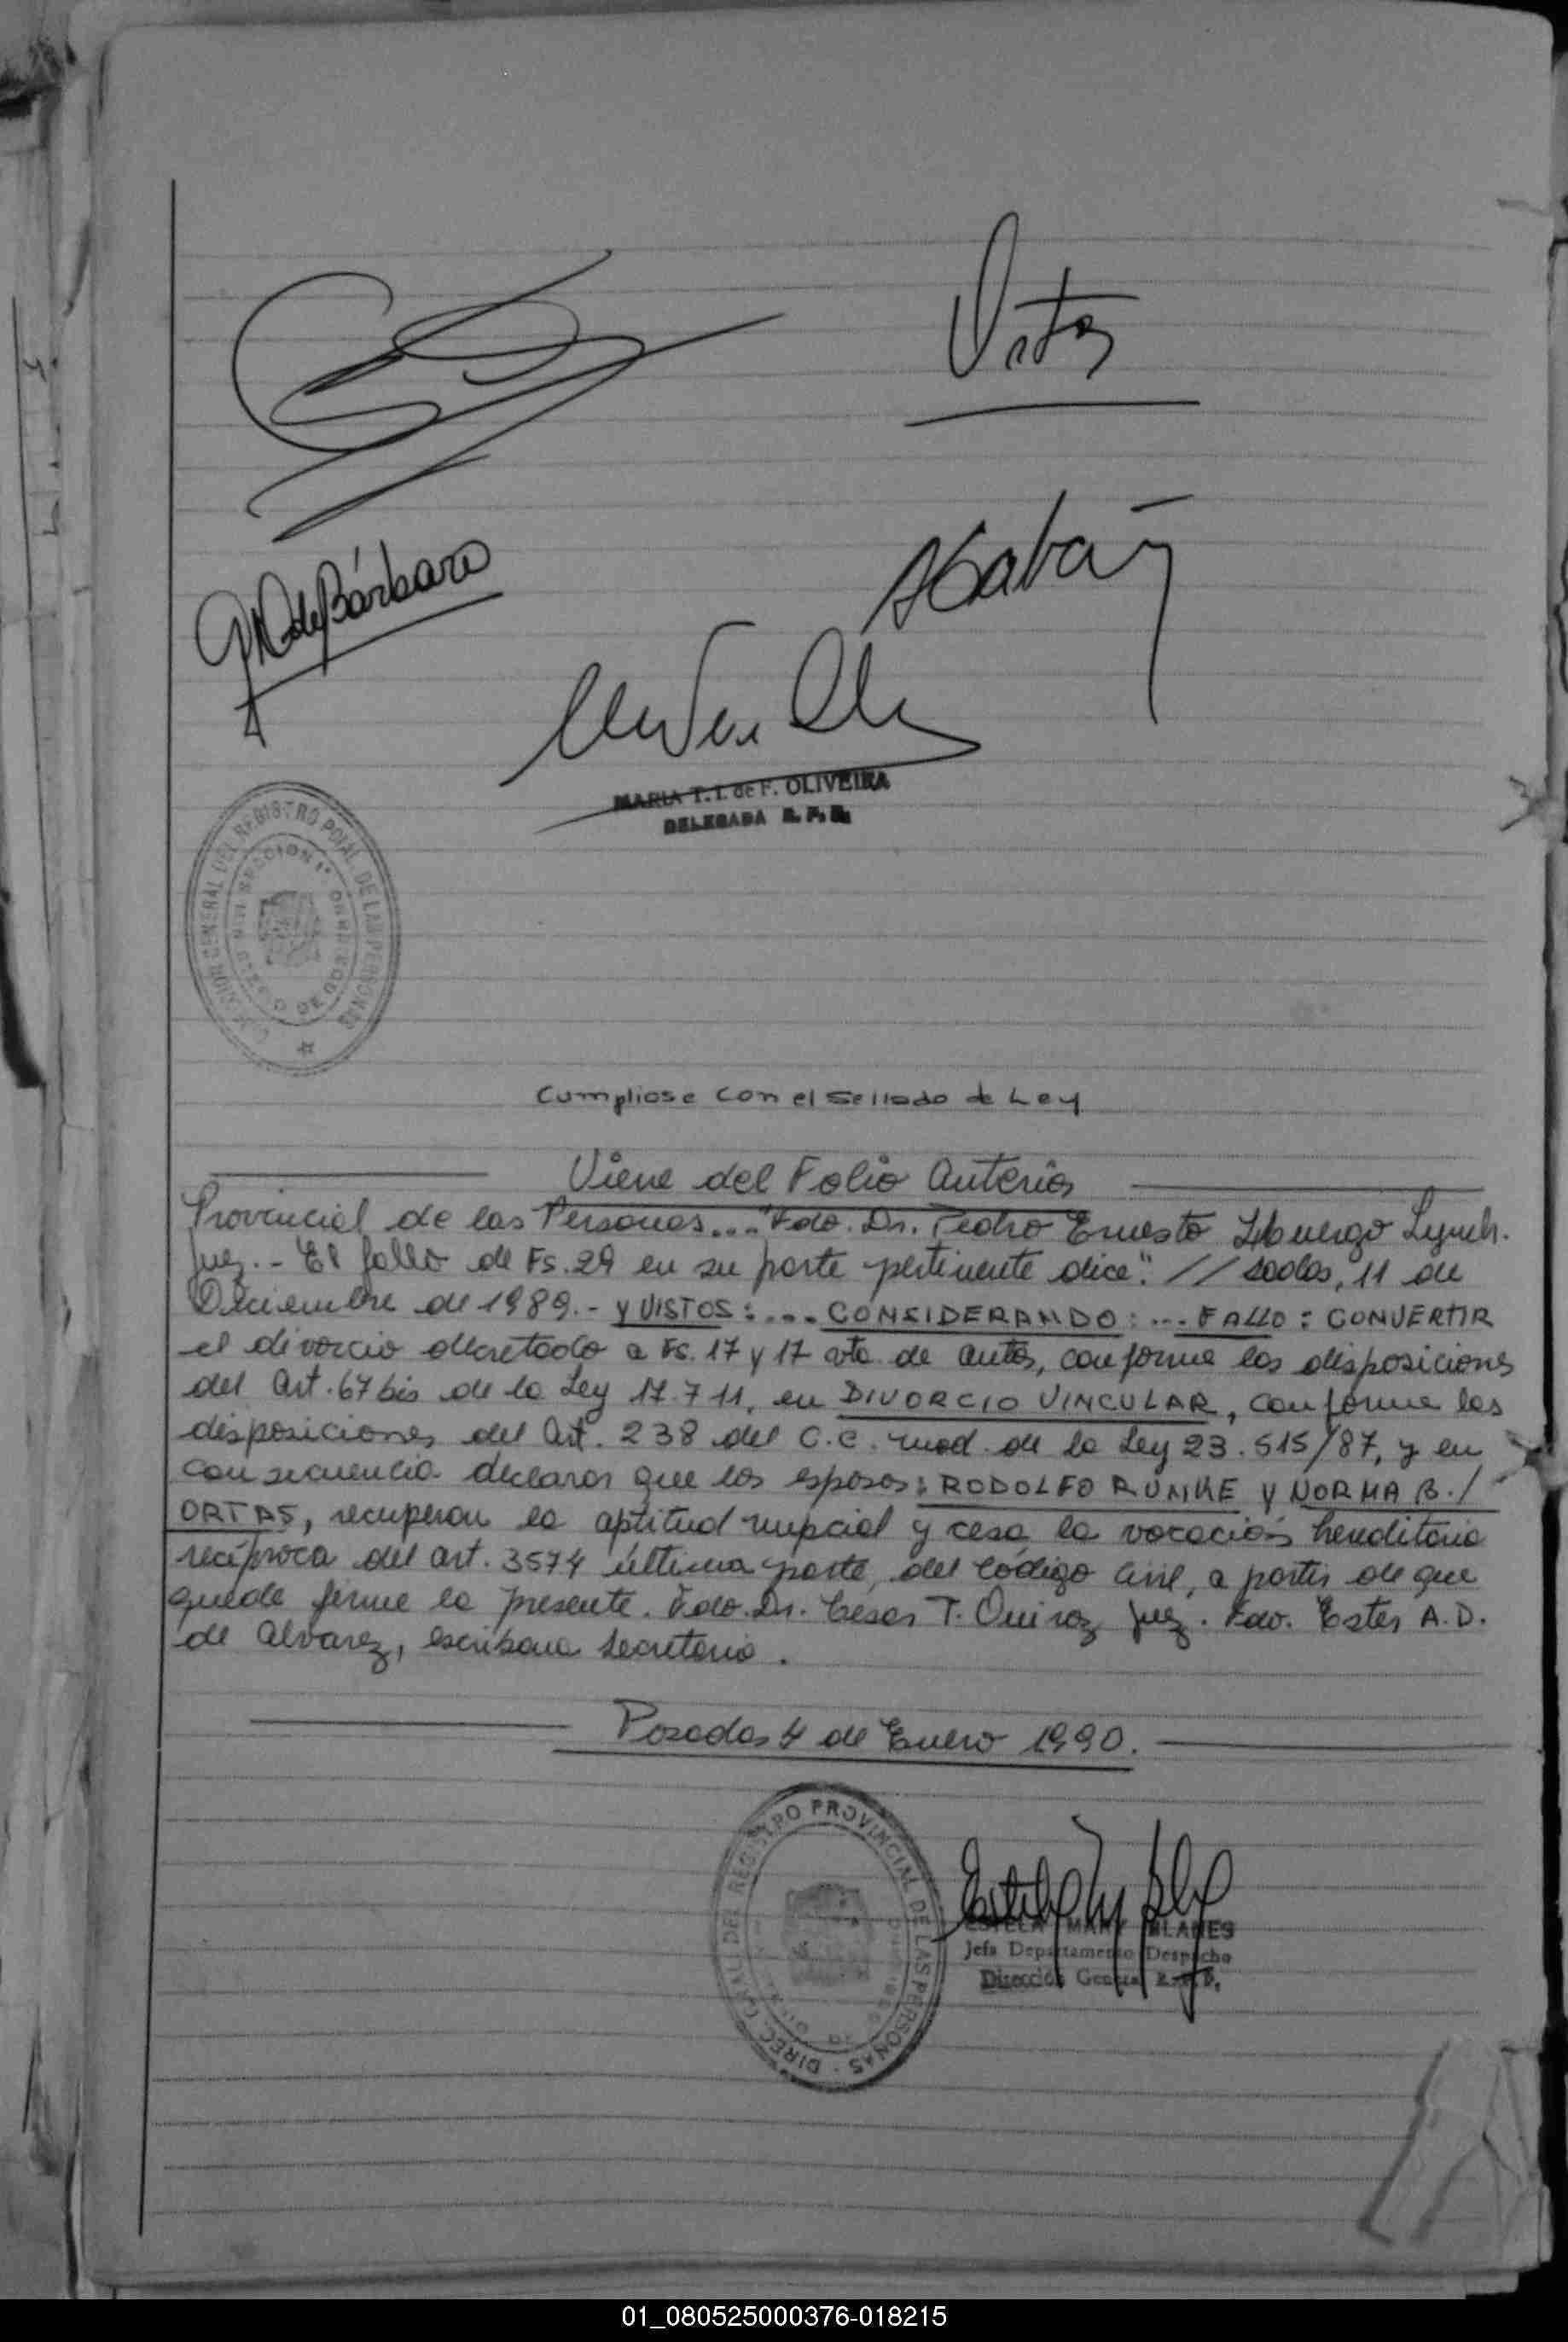 Ortas
G N de Bárbaro
MARIA T. I. de F. OLIVEIRA
DELEGADA R. P. P.
DIRECCION GENERAL DEL REGISTRO PCIAL. DE LAS PERSONAS
SECCION 1ª
Cumpliose con el sellado de Ley
Viene del Folio Anterior
Provincial de las Personas...." Fdo. Dr. Pedro Ernesto Lynch.
Juez.- El fallo de Fs. 29 en su parte pertinente dice: "//sadas, 11 de
Diciembre de 1989.- Y VISTOS:.... CONSIDERANDO:... FALLO: CONVERTIR
el divorcio decretado a Fs. 17 y 17 vta. de autos, conforme las disposiciones
del Art. 67 bis de la Ley 17.711, en DIVORCIO VINCULAR, conforme las
disposiciones del Art. 238 del C.C. mod. de la Ley 23.515/87, y en
consecuencia declaros que los esposos: RODOLFO RUNKE Y NORMA B./
ORTAS, recuperan la aptitud nupcial y cesa la vocación hereditaria
recíproca del art. 3574 última parte, del Código Civil, a partir de que
quede firme la presente. Fdo. Dr. Cesar T. Quiroz Juez. Fdo. Ester A. D.
de Alvarez, escribana Secretaria.
Posadas 4 de Enero 1990.
DIREC. GRAL. DEL REGISTRO PROVINCIAL DE LAS PERSONAS
ESTELA MARY BLANES
Jefa Departamento Despacho
Dirección General R.P.P.
01_080525000376-018215